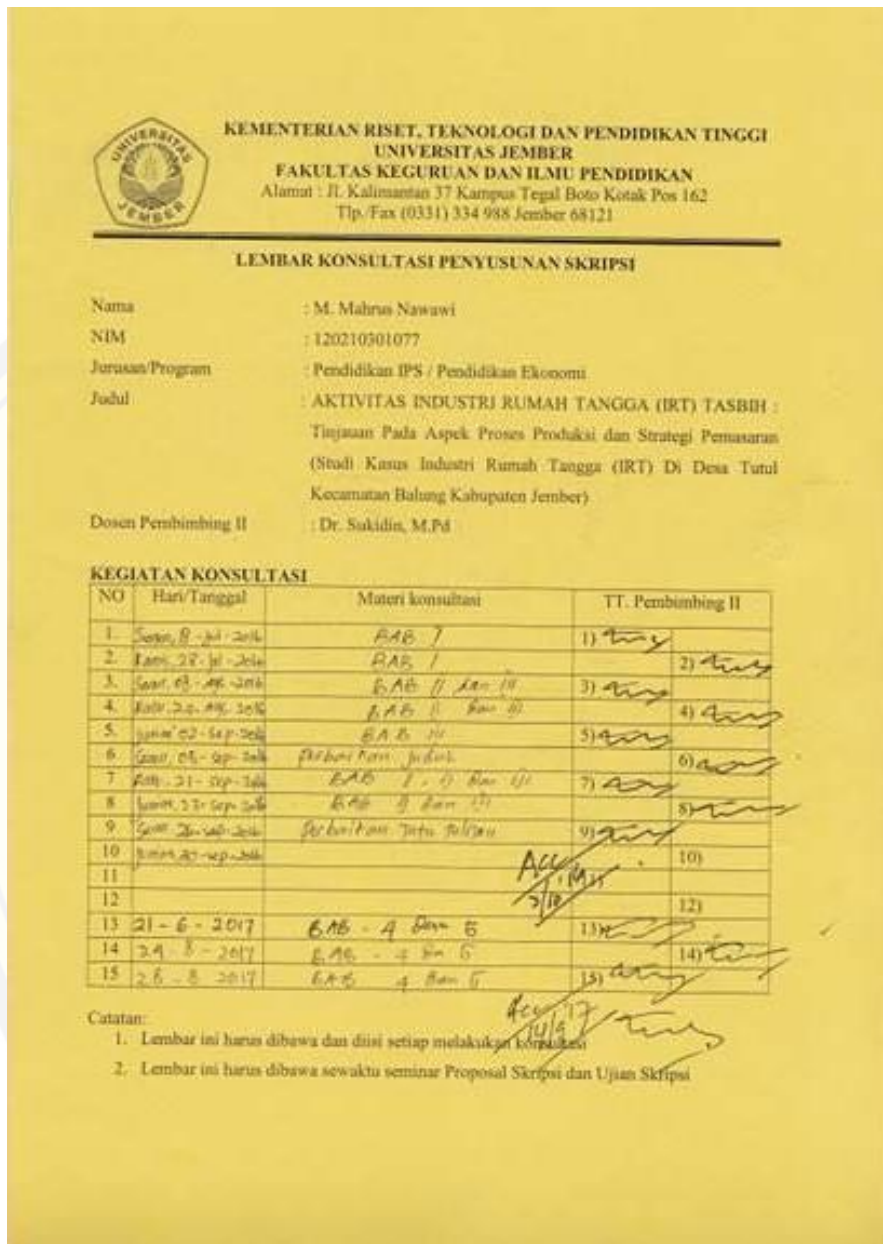 UNIVERSITAS
JEMBER
KEMENTERIAN RISET, TEKNOLOGI DAN PENDIDIKAN TINGGI
UNIVERSITAS JEMBER
FAKULTAS KEGURUAN DAN ILMU PENDIDIKAN
Alamat : Jl. Kalimantan 37 Kampus Tegal Boto Kotak Pos 162
Tlp./Fax (0331) 334 988 Jember 68121
LEMBAR KONSULTASI PENYUSUNAN SKRIPSI
Nama : M. Mahrus Nawawi
NIM : 120210301077
Jurusan/Program : Pendidikan IPS / Pendidikan Ekonomi
Judul : AKTIVITAS INDUSTRI RUMAH TANGGA (IRT) TASBIH :
Tinjauan Pada Aspek Proses Produksi dan Strategi Pemasaran
(Studi Kasus Industri Rumah Tangga (IRT) Di Desa Tutul
Kecamatan Balung Kabupaten Jember)
Dosen Pembimbing II : Dr. Sukidin, M.Pd
KEGIATAN KONSULTASI
NO Hari/Tanggal Materi konsultasi TT. Pembimbing II
1. BAB I 1)
2. BAB I 2)
3. BAB II dan III 3)
4. BAB II dan III 4)
5. BAB III 5)
6 Perbaikan judul 6)
7 21 - sep - BAB I, II dan III 7)
8 BAB II dan III 8)
9 Perbaikan tata tulisan 9)
10 10)
Acc
11
12 12)
13 21 - 6 - 2017 BAB - 4 dan 5 13)
14 24 - 8 - 2017 BAB - 4 dan 5 14)
15 28 - 8 - 2017 BAB 4 dan 5 15)
Acc
Catatan:
1. Lembar ini harus dibawa dan diisi setiap melakukan konsultasi
2. Lembar ini harus dibawa sewaktu seminar Proposal Skripsi dan Ujian Skripsi